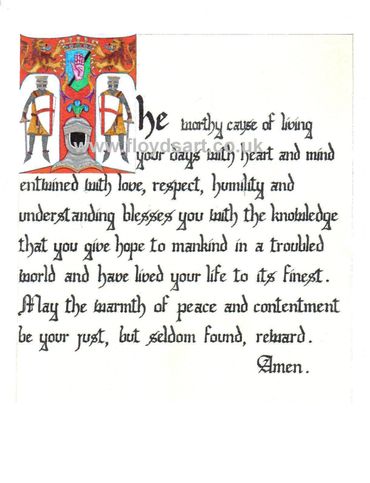 The worthy cause of living
www.floydsart.co.uk
your days with heart and mind
entwined with love, respect, humility and
understanding blesses you with the knowledge
that you give hope to mankind in a troubled
world and have lived your life to its finest.
May the warmth of peace and contentment
be your just, but seldom found, reward.
Amen.